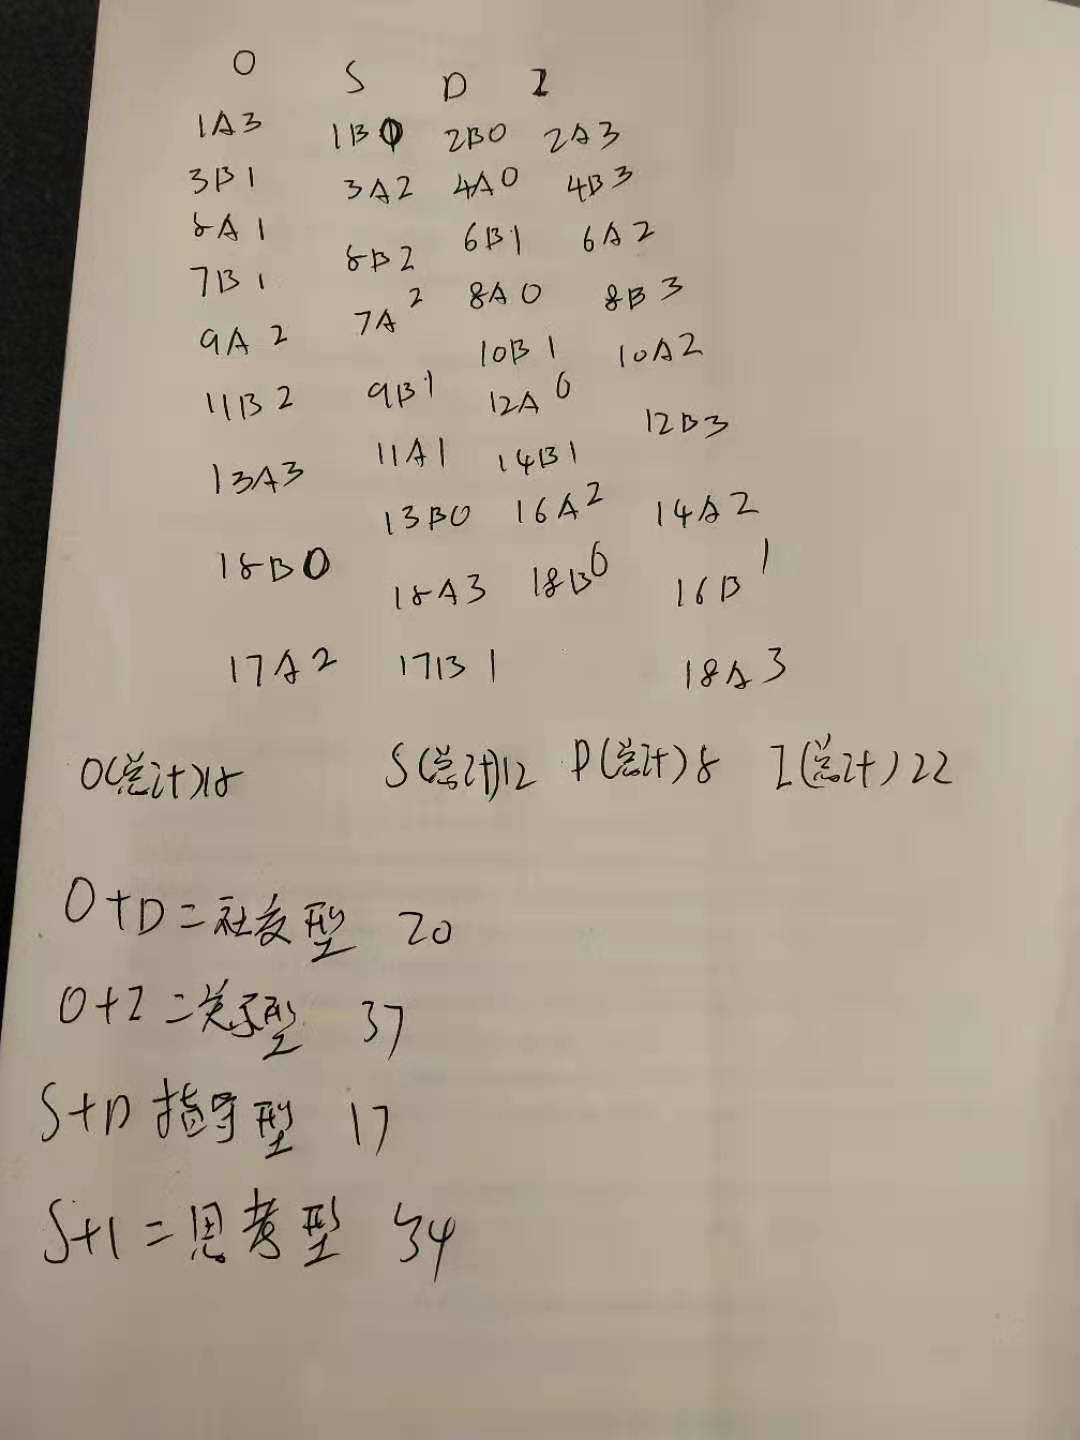 O S D I
1A3 1B0 2B0 2A3
3B1 3A2 4A0 4B3
5A1 5B2 6B1 6A2
7B1 7A2 8A0 8B3
9A2 9B1 10B1 10A2
11B2 11A1 12A0 12B3
13A3 13B0 14B1 14A2
15B0 15A3 16A2 16B1
17A2 17B1 18B0 18A3
O(总计)15 S(总计)12 D(总计)5 I(总计)22
O+D=社交型 20
O+I=关系型 37
S+D 指导型 17
S+I=思考型 34